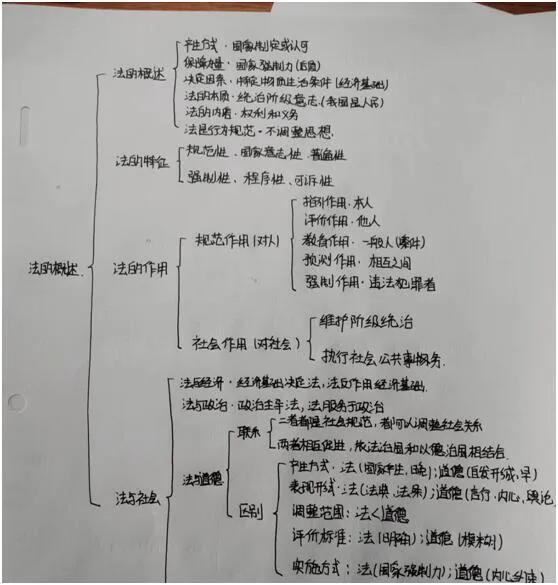 法的概述
法的概述
产生方式·国家制定或认可
保障力量·国家强制力(后盾)
决定因素·特定物质生活条件(经济基础)
法的本质·统治阶级意志(我国是人民)
法的内容·权利和义务
法是行为规范·不调整思想
法的特征
规范性、国家意志性、普遍性
强制性、程序性、可诉性
法的作用
规范作用(对人)
指引作用·本人
评价作用·他人
教育作用·一般人(案件)
预测作用·相互之间
强制作用·违法犯罪者
社会作用(对社会)
维护阶级统治
执行社会公共事务
法与社会
法与经济·经济基础决定法,法反作用经济基础
法与政治·政治主导法,法服务于政治
法与道德
联系
二者都是社会规范,都可以调整社会关系
两者相互促进,依法治国和以德治国相结合
区别
产生方式·法(国家产生,晚);道德(自发形成,早)
表现形式·法(法典、法条);道德(言行、内心、舆论
调整范围:法<道德
评价标准:法(明确);道德(模糊)
实施方式:法(国家强制力);道德(内心